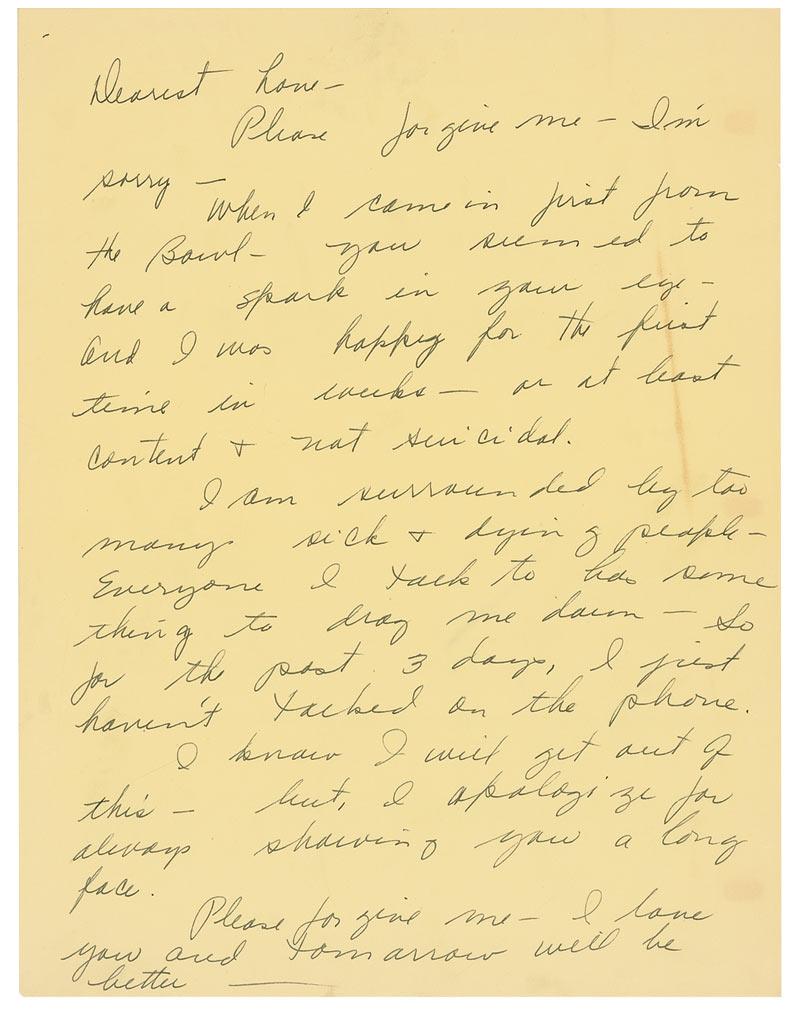 Dearest Love-
Please forgive me - I'm
sorry -
When I came in first from
the Bowl - you seemed to
have a spark in your eye -
And I was happy for the first
time in weeks - or at least
content & not suicidal.
I am surrounded by too
many sick & dying people -
Everyone I talk to has some
thing to drag me down - So
for the past 3 days, I just
haven't talked on the phone.
I know I will get out of
this - but, I apologize for
always showing you a long
face.
Please forgive me - I love
you and tomorrow will be
better -